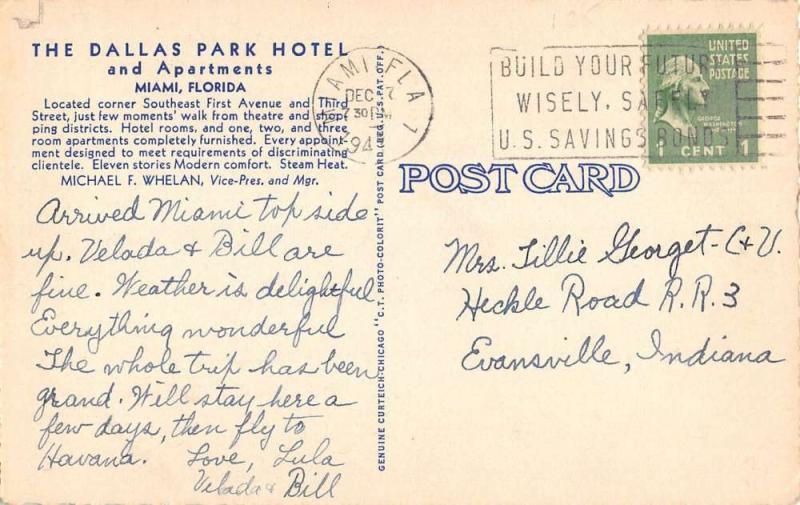 THE DALLAS PARK HOTEL
and Apartments
MIAMI, FLORIDA
Located corner Southeast First Avenue and Third
Street, just few moments' walk from theatre and shop-
ping districts. Hotel rooms, and one, two, and three
room apartments completely furnished. Every appoint-
ment designed to meet requirements of discriminating
clientele. Eleven stories Modern comfort. Steam Heat.
MICHAEL F. WHELAN, Vice-Pres. and Mgr.
Arrived Miami top side
up. Velada & Bill are
fine. Weather is delightful
Everything wonderful
The whole trip has been
grand. Will stay here a
few days, then fly to
Havana. Love, Lula
Velada & Bill
GENUINE CURTEICH-CHICAGO "C.T. PHOTO-COLORIT" POST CARD (REG. U.S. PAT. OFF.)
MIAMI, FLA.
DEC 7
730 PM
194
BUILD YOUR FUTURE
WISELY, SAFELY
U.S. SAVINGS BONDS
UNITED
STATES
POSTAGE
GEORGE
WASHINGTON
1 CENT 1
POST CARD
Mrs. Tillie Georget - C & V.
Heckle Road R.R. 3
Evansville, Indiana